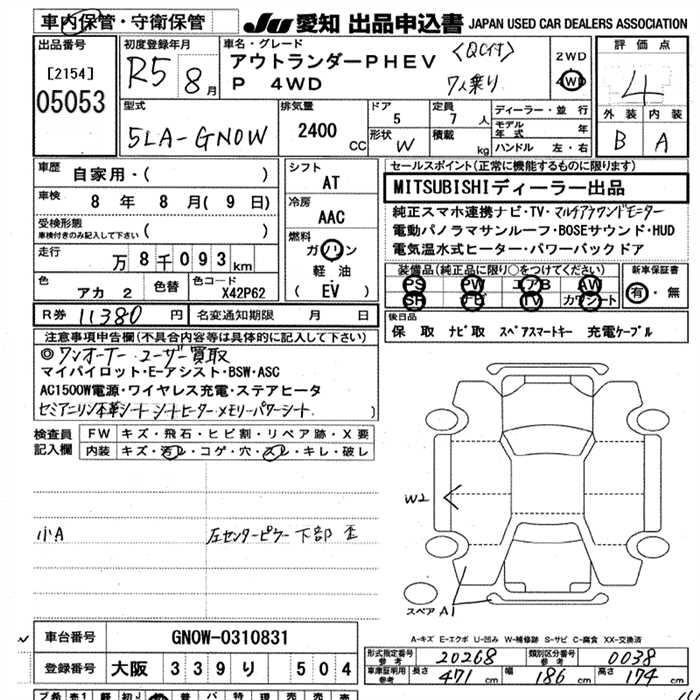 車内保管・守衛保管
JU 愛知 出品申込書 JAPAN USED CAR DEALERS ASSOCIATION
出品番号
[2154]
05053
初度登録年月
R5 8月
車名・グレード
アウトランダーPHEV
〈QC付〉
P 4WD
7人乗り
2WD
4WD
評価点
4
外装 内装
B A
型式
5LA-GN0W
排気量
2400
CC
ドア
5
形状
W
定員
7人
積載
kg
ディーラー・並行
モデル年式 年
ハンドル 左・右
車歴
自家用・( )
車検
8年 8月( 9日)
受検形態
車検付きのみ記入して下さい ( )
走行
万8千093km
色
アカ 2
色替
色コード
X42P62
シフト
AT
冷房
AAC
燃料
ガソリン
軽油
( EV )
セールスポイント(正常に機能するものに限ります)
MITSUBISHIディーラー出品
純正スマホ連携ナビ・TV・マルチアラウンドモニター
電動パノラマサンルーフ・BOSEサウンド・HUD
電気温水式ヒーター・パワーバックドア
装備品(純正品に限り○をつけてください)
PS PW エアB AW
SR ナビ TV カワシート
新車保証書
有・無
R券 11380円
名変通知期限 月 日
後日品
保 取 ナビ取 スペアスマートキー 充電ケーブル
注意事項申告欄(不具合内容等は具体的に記入して下さい)
◎ワンオーナー ユーザー買取
マイパイロット・E-アシスト・BSW・ASC
AC1500W電源・ワイヤレス充電・ステアヒータ
セミアニリン本革シート シートヒーター メモリーパワーシート
検査員記入欄
FW キズ・飛石・ヒビ割・リペア跡・X要
内装 キズ・汚レ・コゲ・穴・スレ・キレ・破レ
小A
左センターピラー下部 歪
W2
スペア A1
A-キズ E-エクボ U-凹み W-補修跡 S-サビ C-腐食 XX-交換済
車台番号 GN0W-0310831
登録番号 大阪 339 り 504
形式指定番号 参考 20268
類別区分番号 参考 0038
車庫証明用 参考 長さ 471cm 幅 186cm 高さ 174cm